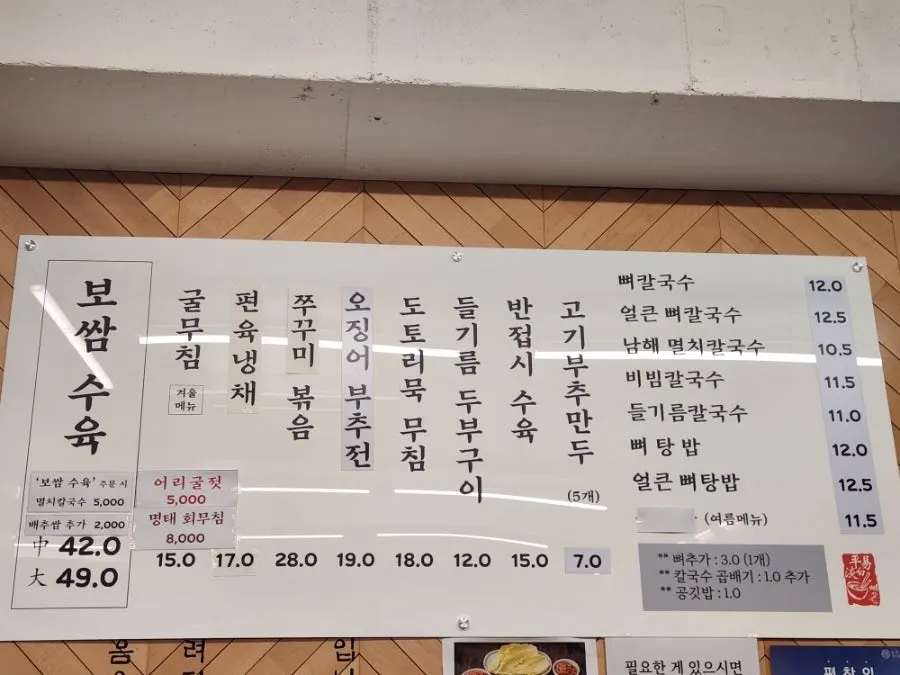 보쌈 수육
'보쌈 수육' 주문 시
멸치칼국수 5,000
배추쌈 추가 2,000
中 42.0
大 49.0
어리굴젓
5,000
명태 회무침
8,000
굴무침
겨울
메뉴
15.0
편육냉채
17.0
쭈꾸미 볶음
28.0
오징어 부추전
19.0
도토리묵 무침
18.0
들기름 두부구이
12.0
반접시 수육
15.0
고기부추만두
(5개)
7.0
뼈칼국수 12.0
얼큰 뼈칼국수 12.5
남해 멸치칼국수 10.5
비빔칼국수 11.5
들기름칼국수 11.0
뼈탕밥 12.0
얼큰 뼈탕밥 12.5
(여름메뉴) 11.5
** 뼈추가 : 3.0 (1개)
** 칼국수 곱배기 : 1.0 추가
** 공깃밥 : 1.0
필요한 게 있으시면